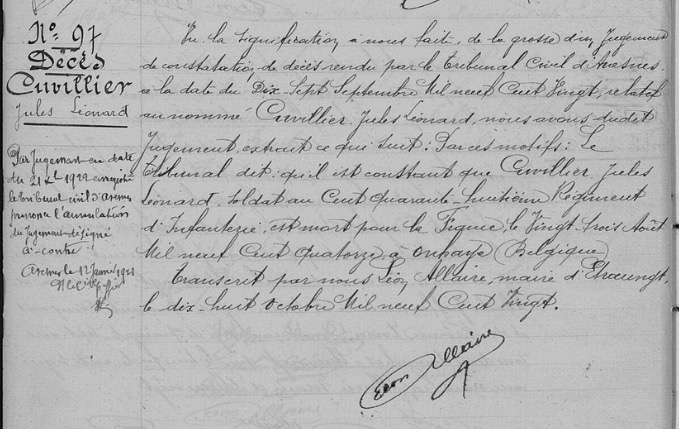 N° 97
Décès
Cuvillier
Jules Léonard
Par jugement en date
du 21 1922 enregistré
le tribunal civil d'Avesnes
prononce l'annulation
du jugement désigné
ci-contre
Avesnes le 12
Vu la signification à nous faite, de la grosse d'un Jugement
de constatation de décès rendu par le Tribunal Civil d'Avesnes,
à la date du Dix-Sept Septembre Mil neuf Cent Vingt, relatif
au nommé Cuvillier, Jules Léonard, nous avons dudit
Jugement, extrait ce qui suit: Par ces motifs: Le
Tribunal dit: qu'il est constant que Cuvillier Jules
Léonard, soldat au Cent Quarante-huitième Régiment
d'Infanterie, est mort pour la France, le Vingt-trois Août
Mil neuf Cent Quatorze, à Onhaye (Belgique)
Transcrit par nous Léon Allaire, maire d'Etroeungt,
le dix-huit Octobre Mil neuf Cent Vingt.
Léon Allaire